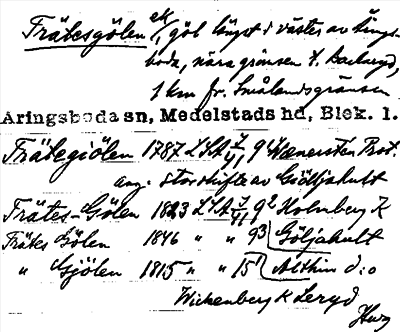 Frätesgölen ek/, göl längst i väster av Årings-
boda, nära gränsen t. Backaryd,
1 km fr. Smålandsgränsen
Aringsboda sn, Medelstads hd, Blek. l.
Frätegiölen 1787 LSA 9¹ Wænersten Prot.
ang. Storskifte av Giöljahult
Frätes-Gölen 1823 LSA 9² Holmberg K
Frätes Gölen 1846 " " 9³ Göljahult
" Gjölen 1815 " " 15¹ Althin d:o
Wickenberg K Leryd